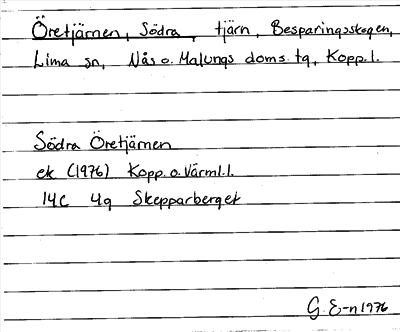 Öretjärnen, Södra, tjärn, Besparingsskogen,
Lima sn, Nås o. Malungs doms. tg, Kopp. l.
Södra Öretjärnen
ek (1976) Kopp. o. Värml. l.
14C 4g Skepparberget
G. E-n 1976